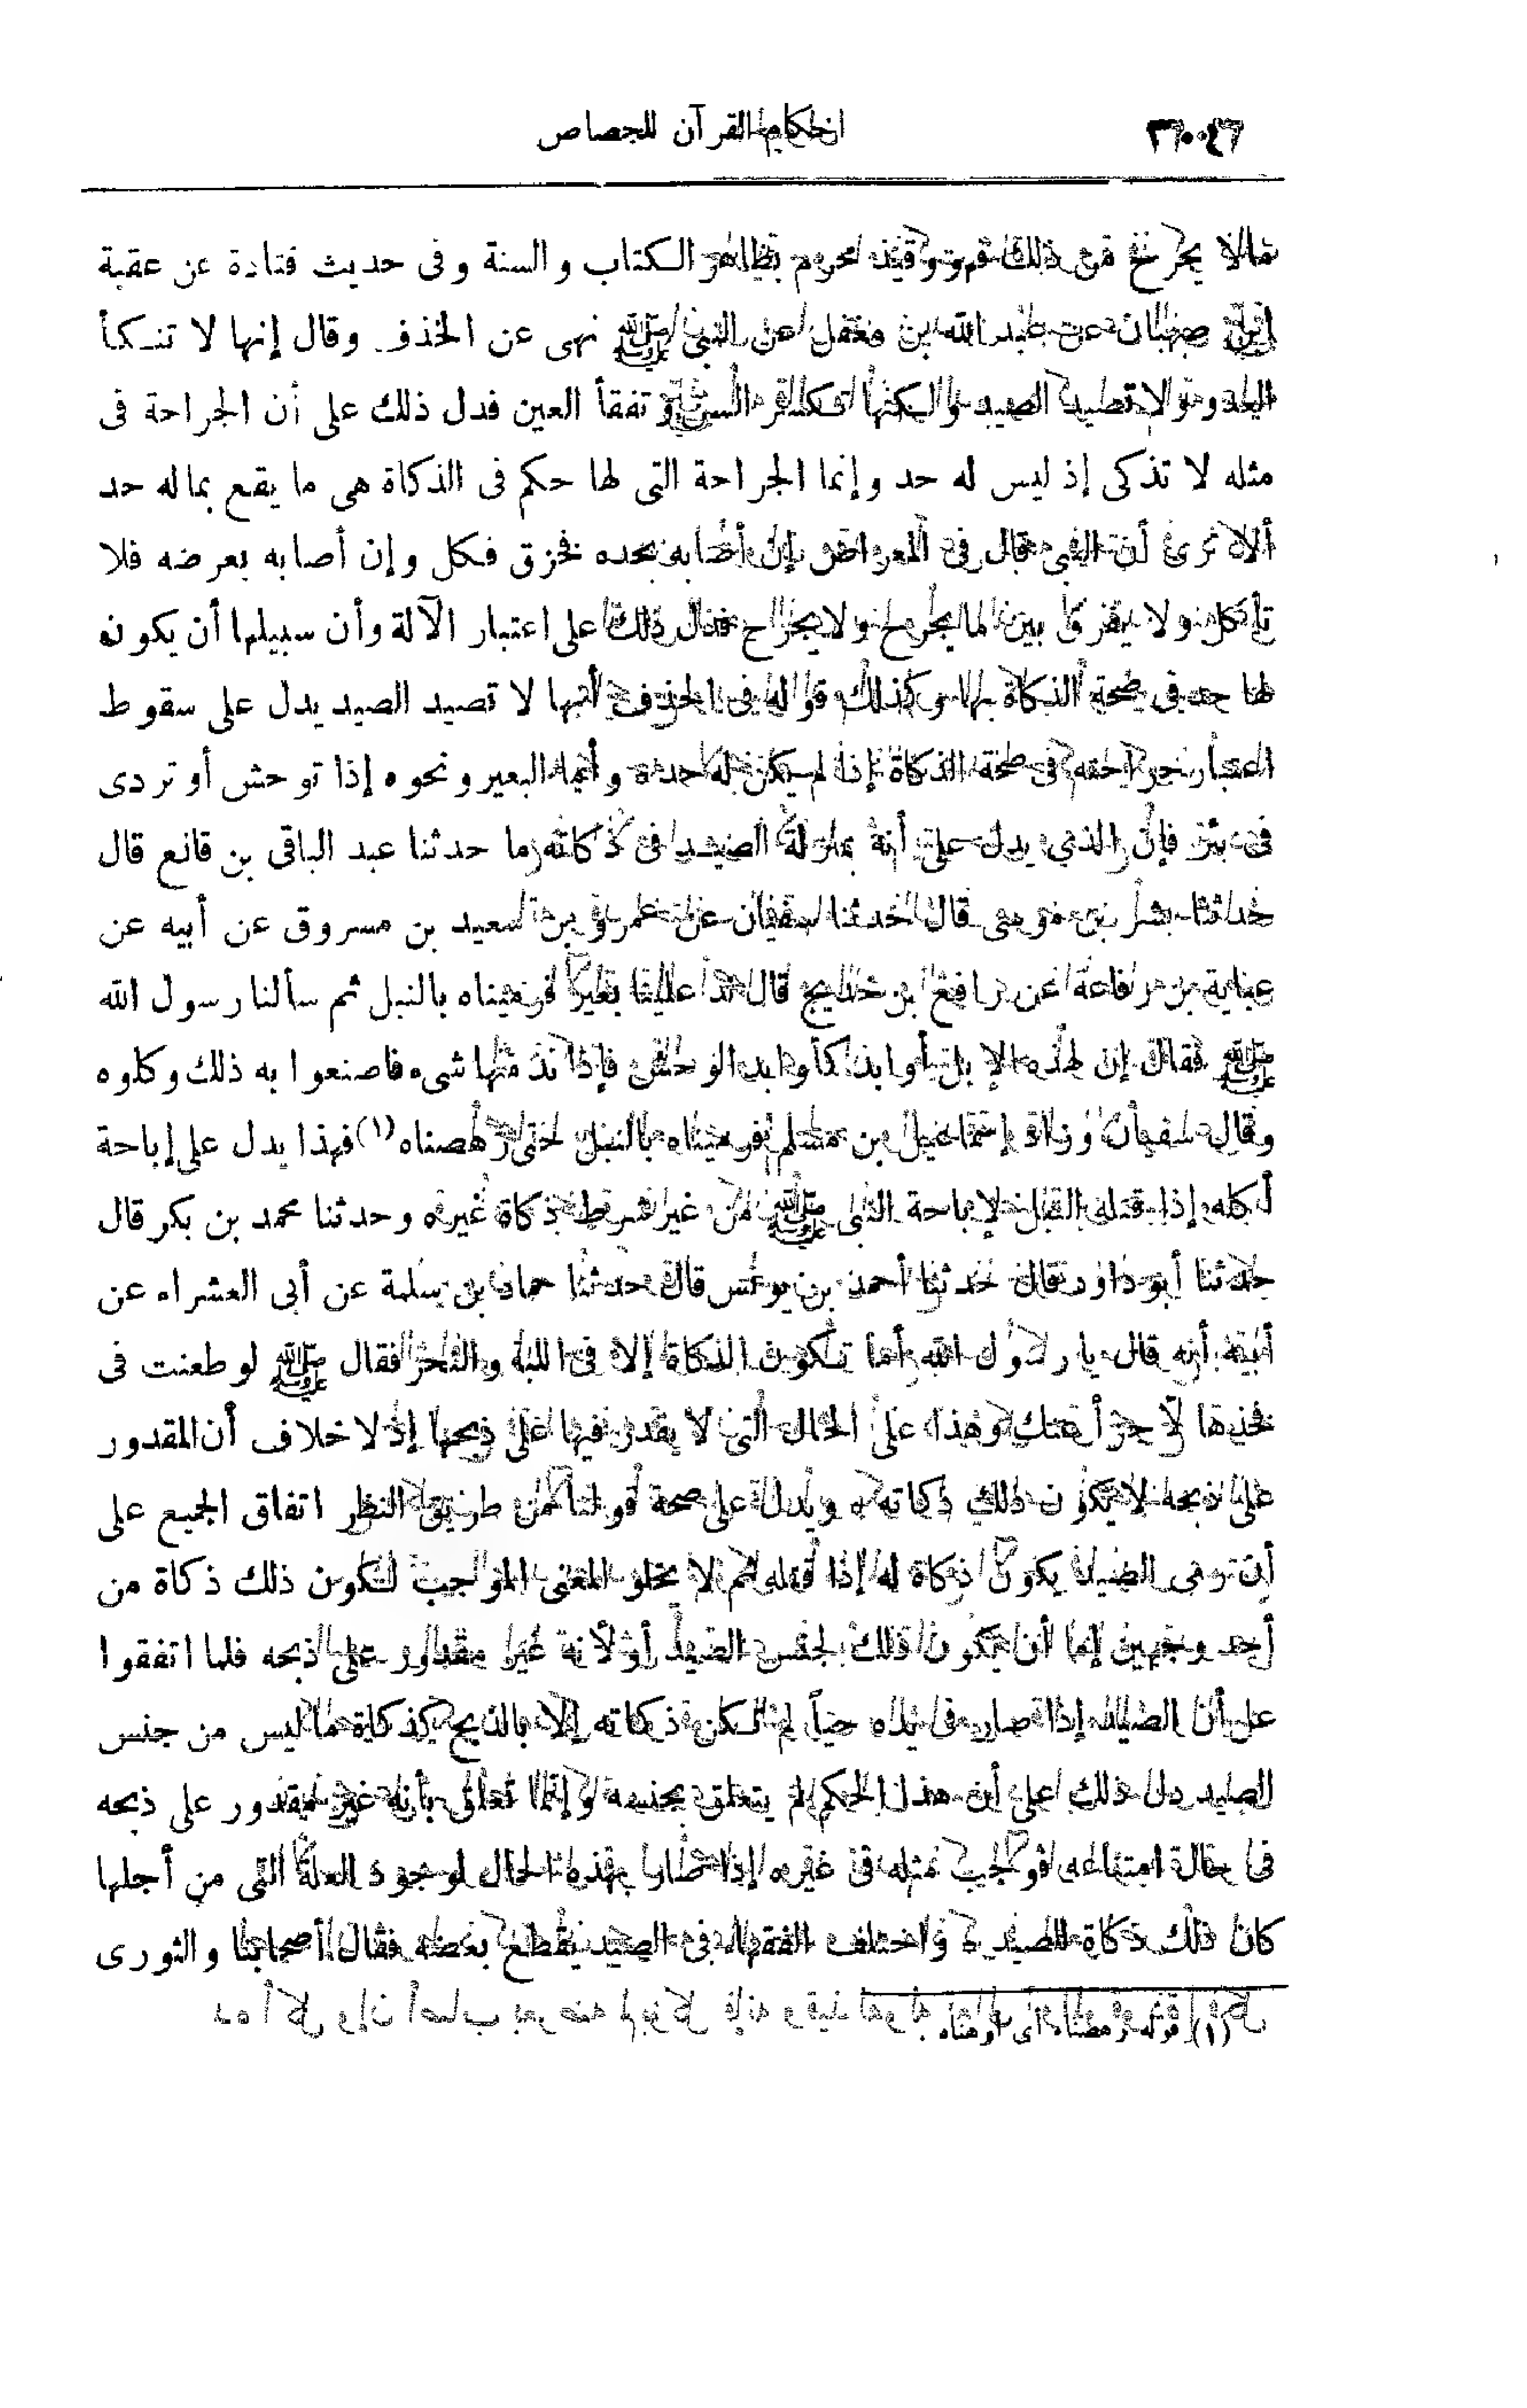 أحكام القرآن للجصاص
مالا يجرح من ذلك فهو وقيذ محرم بظاهر الكتاب والسنة وفى حديث قتادة عن عقبة
ابن صهبان عن عبد الله بن مغفل عن النبى ﷺ نهى عن الخذف وقال إنها لا تنكأ
العدو ولا تصيد الصيد ولكنها تكسر السن وتفقأ العين فدل ذلك على أن الجراحة فى
مثله لا تذكى إذ ليس له حد وإنما الجراحة التى لها حكم فى الذكاة هى ما يقع بماله حد
ألا ترى أن النبى قال فى المعراض إن أصابه بحده فخزق فكل وإن أصابه بعرضه فلا
تأكل ولا يفرق بين ما يجرح ولا يجرح فدل ذلك على اعتبار الآلة وأن سبيلها أن يكون
لها حد فى صحة الذكاة بها وكذلك قوله فى الخذف أنها لا تصيد الصيد يدل على سقوط
اعتبار جراحته فى صحة الذكاة إذا لم يكن له حد وأما البعير ونحوه إذا توحش أو تردى
فى بئر فإن الذى يدل على أنه بمنزلة الصيد فى ذكاته ما حدثنا عبد الباقى بن قانع قال
حدثنا بشر بن موسى قال حدثنا سفيان عن عمرو بن سعيد بن مسروق عن أبيه عن
عباية بن رفاعة عن رافع بن خديج قال ند علينا بعير فرميناه بالنبل ثم سألنا رسول الله
ﷺ فقال إن لهذه الإبل أوابد كأوابد الوحش فإذا ند منها شىء فاصنعوا به ذلك وكلوه
وقال سفيان وزاد إسماعيل بن مسلم فرميناه بالنبل حتى رهصناه (١) فهذا يدل على إباحة
أكله إذا قتله النبل لإباحة النبى ﷺ من غير شرط ذكاة غيره وحدثنا محمد بن بكر قال
حدثنا أبو داود قال حدثنا أحمد بن يونس قال حدثنا حماد بن سلمة عن أبى العشراء عن
أبيه أنه قال يا رسول الله أما تكون الذكاة إلا فى اللبة والنحر فقال ﷺ لو طعنت فى
فخذها لأجزأ عنك وهذا على الحال التى لا يقدر فيها على ذبحها إذ لا خلاف أن المقدور
على ذبحه لا يكون ذلك ذكاته ويدل على صحة قولنا من طريق النظر اتفاق الجميع على
أن رمى الصيد يكون ذكاة له إذا قتله ثم لا يخلو المعنى الموجب لكون ذلك ذكاة من
أحد وجهين إما أن يكون ذلك لجنس الصيد أو لأنه غير مقدور على ذبحه فلما اتفقوا
على أن الصيد إذا صار فى يده حياً لم تكن ذكاته إلا بالذبح كذكاة ما ليس من جنس
الصيد دل ذلك على أن هذا الحكم لم يتعلق بجنسه وإنما تعلق بأنه غير مقدور على ذبحه
فى حال امتناعه فوجب مثله فى غيره إذا صار بهذه الحال لوجود العلة التى من أجلها
كان ذلك ذكاة للصيد واختلف الفقهاء فى الصيد يقطع بعضه فقال أصحابنا والثورى
(١) قوله رهصناه أى أوهناه .